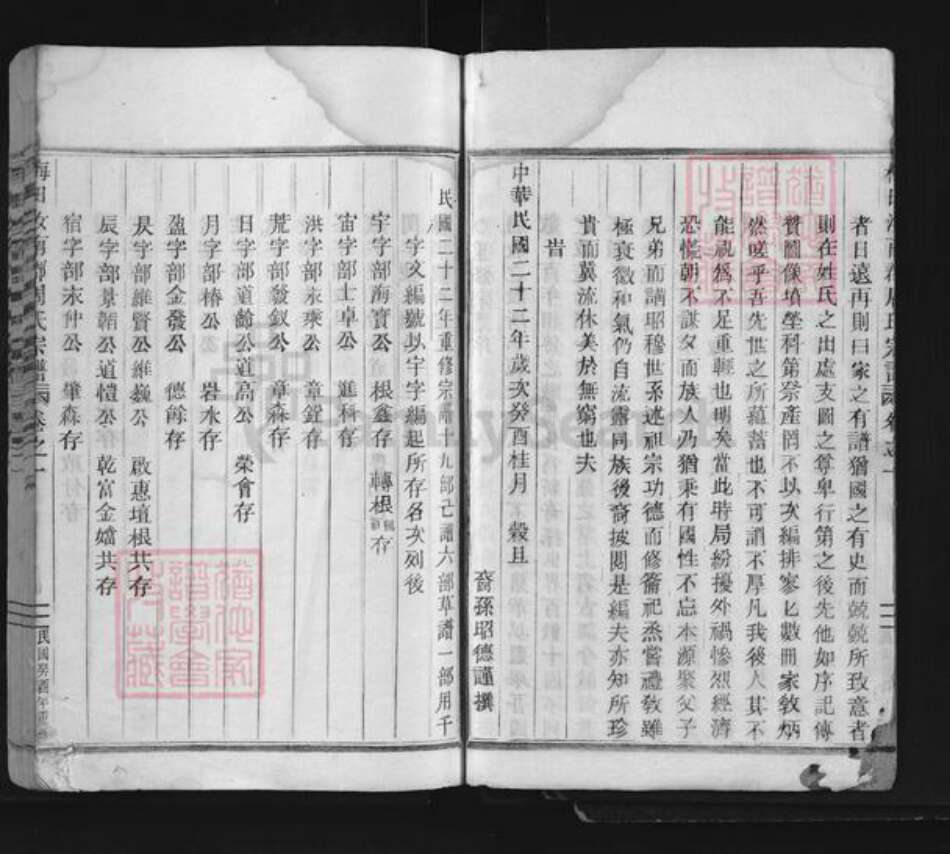 者日遠再則曰家之有譜猶國之有史而兢兢所致意者
則在姓氏之出處支圖之尊卑行第之後先他如序記傳
贊圖像墳塋科第祭產罔不以次編排家乜數冊家敎炳
然嗟乎吾先世之所蘊蓄也不可謂不厚凡我後人其不
能視爲不足重輕也明矣當此時局紛擾外禍慘烈經濟
恐慌朝不謀夕而族人乃猶秉有國性不忘本源聚父子
兄弟而講昭穆世系述祖宗功德而修齋祀烝嘗禮敎雖
極衰微和氣仍自流露同族後裔披閱是編夫亦知所珍
貴而冀流休美於無窮也夫
旹
中華民國二十二年歲次癸酉桂月 穀旦
裔孫昭德謹撰
民國二十二年重修宗譜十九部亡譜六部草譜一部用千
字文編號以宇字編起所存名次列後
宇字部海寶公 根鑫存 轉根存
宙字部士卓公 進科存
洪字部來洙公 章鎧存
荒字部發釵公 章森存
日字部道齡公道高公 榮會存
月字部椿公 岩水存
盈字部金發公 德餘存
昃字部維賢公維巍公 啟惠壇根共存
辰字部景韜公道愷公 乾富金嬌共存
宿字部末仲公 肇森存
宗譜 卷之一
民國癸酉年重修